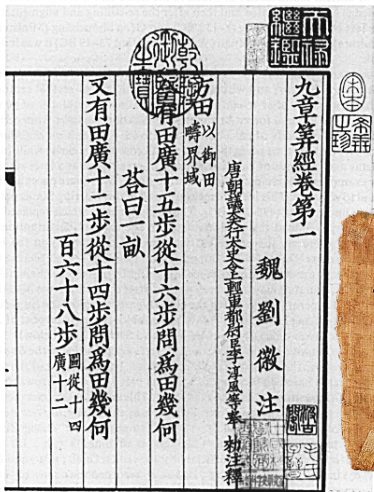 天祿繼鑑
九章筭經卷第一
魏劉徽注
唐朝議大夫行太史令上輕車都尉臣李淳風等奉 勑注釋
方田以御田疇界域
今有田廣十五步從十六步問爲田幾何
荅曰一畝
又有田廣十二步從十四步問爲田幾何
百六十八步圖從十四廣十二